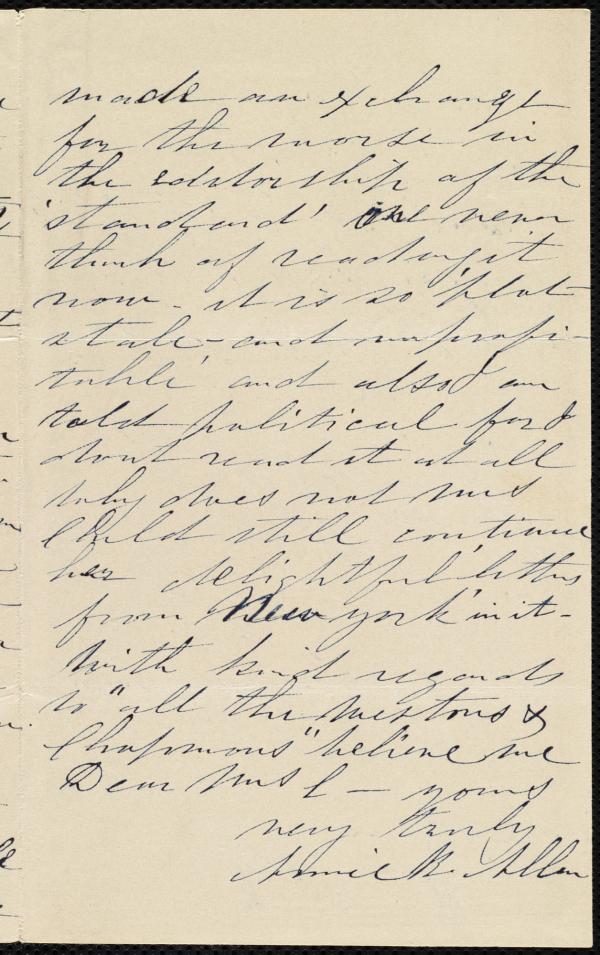 made an exchange
for the worse in
the editorship of the
'standard' one never
think of reading it
now - it is so 'flat
stale - and unprofi-
table' and also I am
told political for I
dont read it at all
why does not Mrs
Child still continue
her delightful letters
from New york' in it -
With kind regards
to "all the Westons &
Chapmans" believe me
Dear Mrs C - yours
very truly
Annie B. Allen